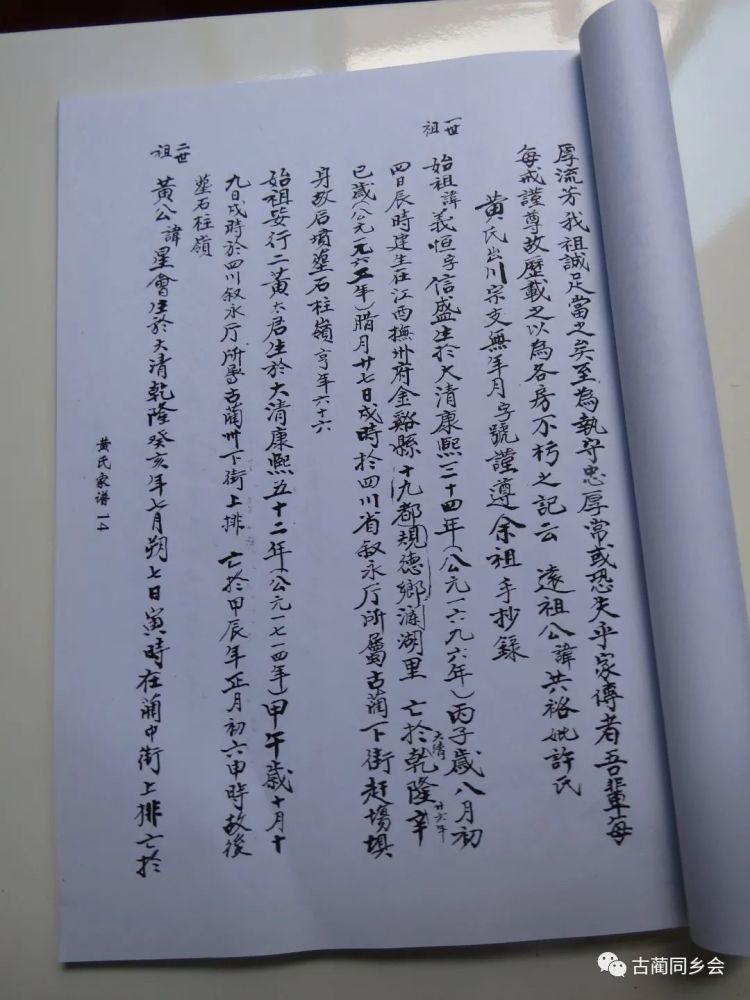 厚流芳我祖誠足當之矣至為執守忠厚常或恐失乎家傳者吾輩每
每戒謹尊故歷載之以為各房不朽之記云 遠祖公諱共裕妣許氏
黃氏出川宗支無年月字號謹遵余祖手抄錄
一世祖
始祖諱義恒字信盛生於大清康熙三十四年(公元一六九六年)丙子歲八月初
四日辰時建生在江西撫州府金谿縣十九都規德鄉湖里 亡於大清乾隆廿六年辛
巳歲(公元一九六五年)腊月廿七日戌時於四川省叙永厅所屬古藺下街赶場壩
身故后墳塋石柱嶺亨年六十六
始祖妣行二黃六君生於大清康熙五十二年(公元一七一四年)甲午歲十月十
九日戌時於四川叙永厅所屬古藺州下街上排 亡於甲辰年正月初六申時故後
塋石柱嶺
二世祖
黃公諱星會生於大清乾隆癸亥年七月朔七日寅時在藺中街上排亡於
黄氏家谱14
古蔺同乡会